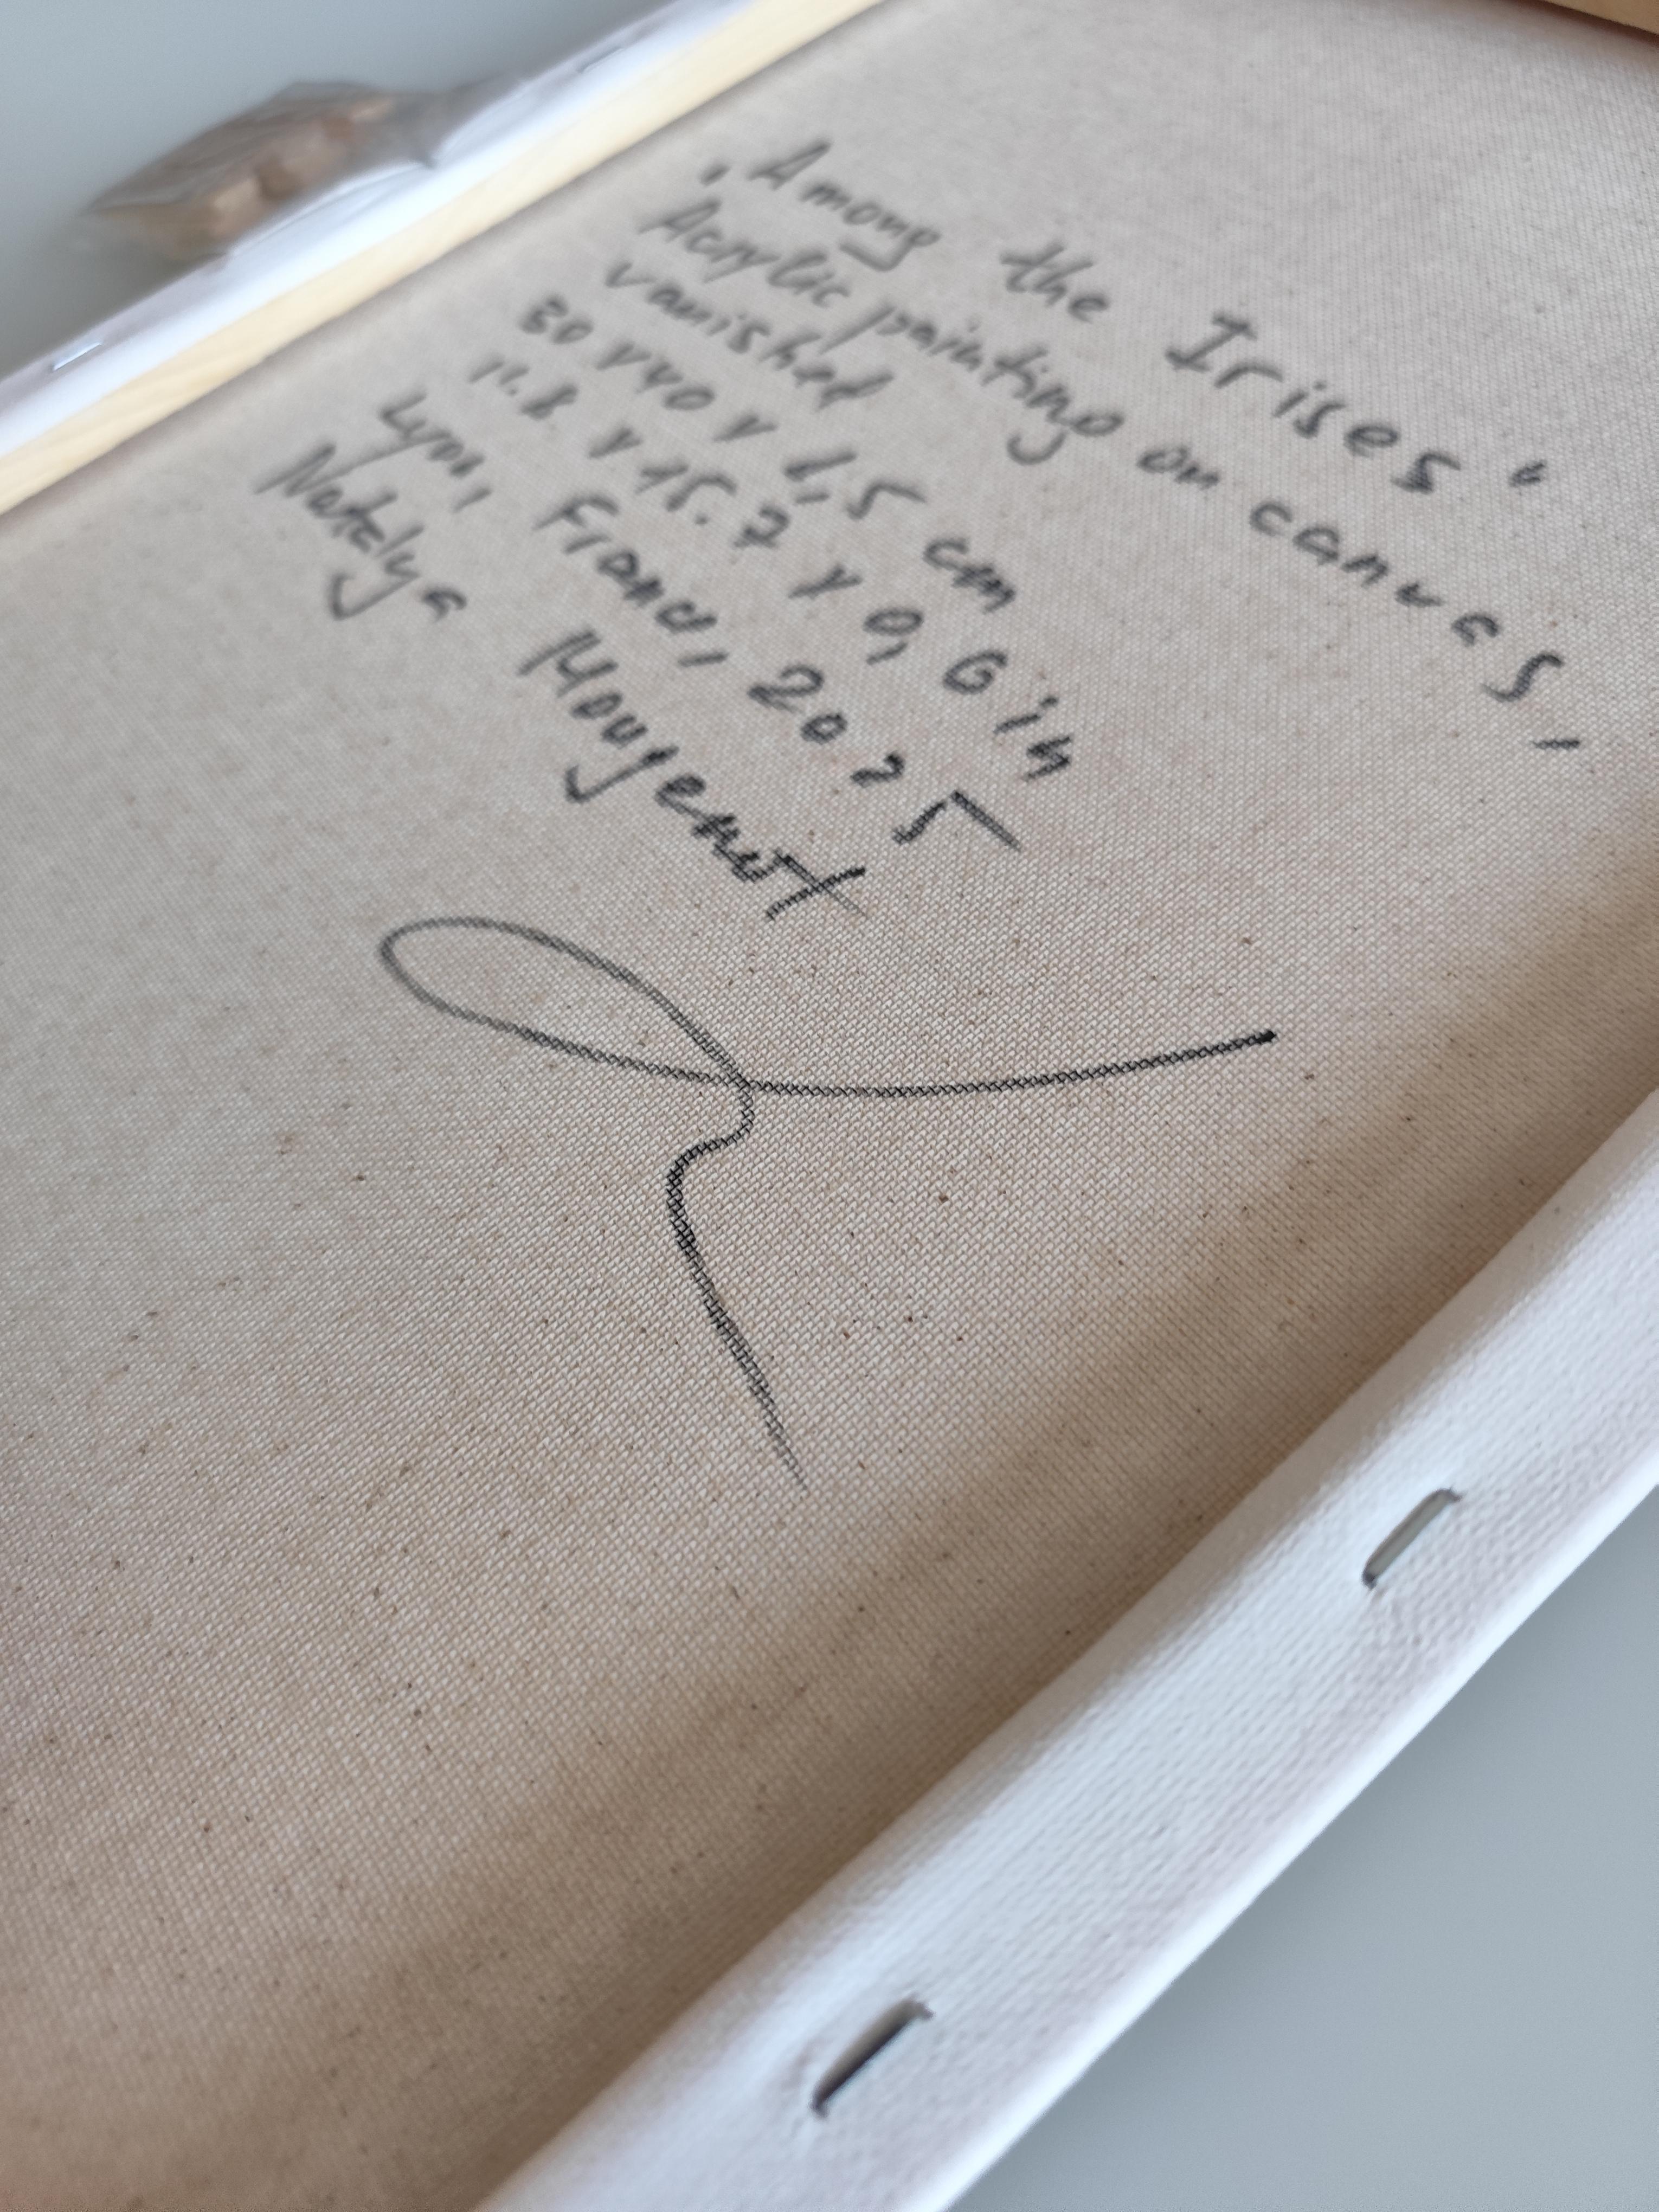 "Among the Irises"
Acrylic painting on canvas,
vanished
30 x 40 x 1,5 cm
11.8 x 15.7 x 0,6 in
Lyon, France, 2025
Natalya Mougenot